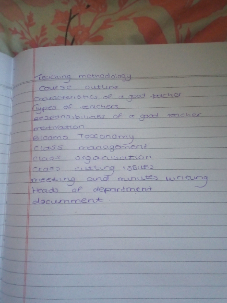 Teaching methodology
Course outline
Characteristics of a good teacher
Types of teachers
responsibilities of a good teacher
motivation
Blooms Taxonomy
Class management
class organization
Cross cutting issues
meeting and minutes writing
Heads of department
document